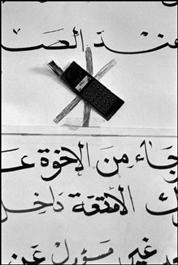 عند الصـ
جاء من الإخوة عـ
ك الأمتعة داخل
غير مسؤول عن